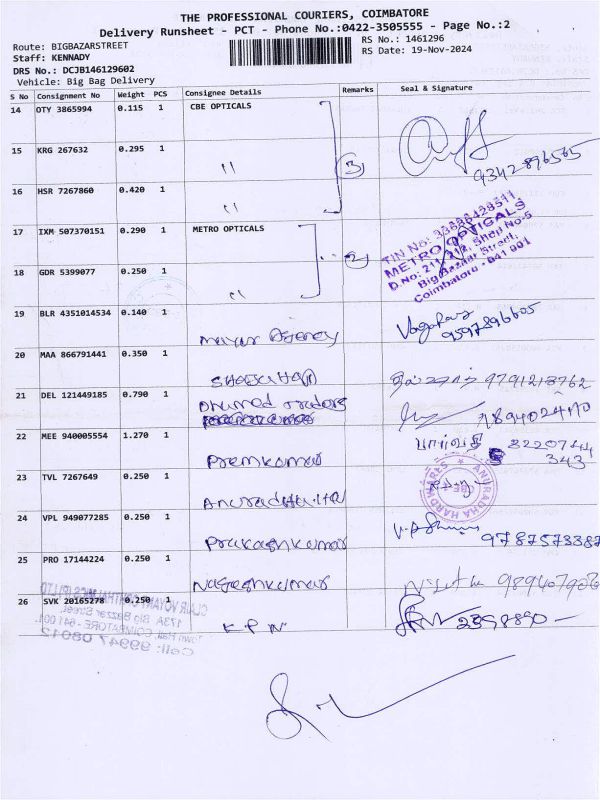 THE PROFESSIONAL COURIERS, COIMBATORE
Delivery Runsheet - PCT - Phone No.:0422-3505555 - Page No.:2
Route: BIGBAZARSTREET
RS No.: 1461296
Staff: KENNADY
RS Date: 19-Nov-2024
DRS No.: DCJB146129602
Vehicle: Big Bag Delivery
S No Consignment No Weight PCS Consignee Details Remarks Seal & Signature
14 OTY 3865994 0.115 1 CBE OPTICALS
15 KRG 267632 0.295 1 〃 3 9342896565
16 HSR 7267860 0.420 1 〃
17 IXM 507370151 0.290 1 METRO OPTICALS 2
TIN No: 33886428511
METRO OPTICALS
D.No: 211-212, Shop No-5
Big Bazaar Street,
Coimbatore - 641 001
18 GDR 5399077 0.250 1 〃
19 BLR 4351014534 0.140 1 Mayur Agency 9597896605
20 MAA 866791441 0.350 1 9791213762
21 DEL 121449185 0.790 1 Dhumed traders
22 MEE 940005554 1.270 1 Premkumar பார்வதி 8220744
343
23 TVL 7267649 0.250 1
ANURADHA HARDWARES
CBE
24 VPL 949077285 0.250 1 Prakashkumar 9787573387
25 PRO 17144224 0.250 1 Nageshkumar Nisetha
26 SVK 20165278 0.250 1 K.P.N 2398890
173A Big Bazzar Street,
Town Hall, COIMBATORE - 641 001.
Cell: 99947 08012